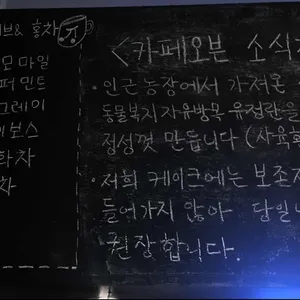 브 & 홍차
모마일
퍼민트
그레이
보스
화차
차
<카페오븐 소식
· 인근 농장에서 가져온
동물복지 자유방목 유정란을
정성껏 만듭니다 (사육환
· 저희 케이크에는 보존
들어가지 않아 당일
권장합니다.